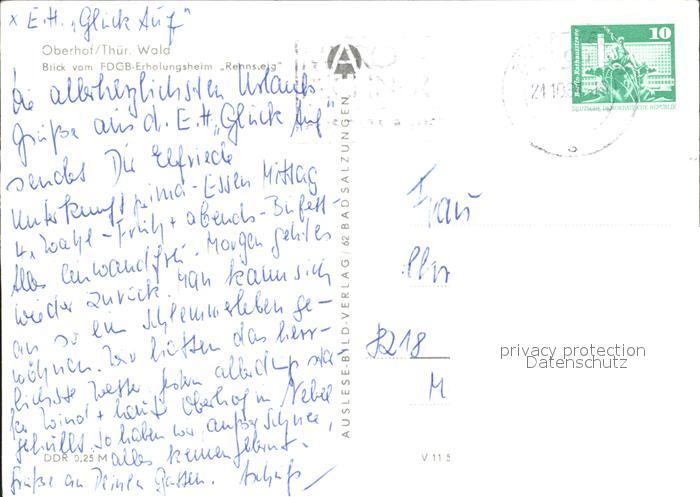 x E.H. „Glück Auf"
Oberhof/Thür. Wald
Blick vom FDGB-Erholungsheim „Rennsteig"
Die allerherzlichsten Urlaubs-
grüße aus d. E.H. „Glück Auf"
sendet Dir Elfriede
Unterkunft prima - Essen Mittag
4x Wahl - Früh + abends - Büfett-
Alles einwandfrei. Morgen geht es
wieder zurück. Man kann sich
an so ein Schlemmerleben ge-
wöhnen. Wir hatten das herr-
lichste Wetter,
Wind + heute Oberhof in Nebel
gehüllt. So haben wir, außer Schnee,
alles kennengelernt.
Grüße an Deinen Gatten.
DDR 0,25 M
AUSLESE-BILD-VERLAG / 62 BAD SALZUNGEN
V 11 5
21.10
10
Berlin, Rathausstraße
DEUTSCHE DEMOKRATISCHE REPUBLIK
Frau
Chr
8218
M
privacy protection
Datenschutz